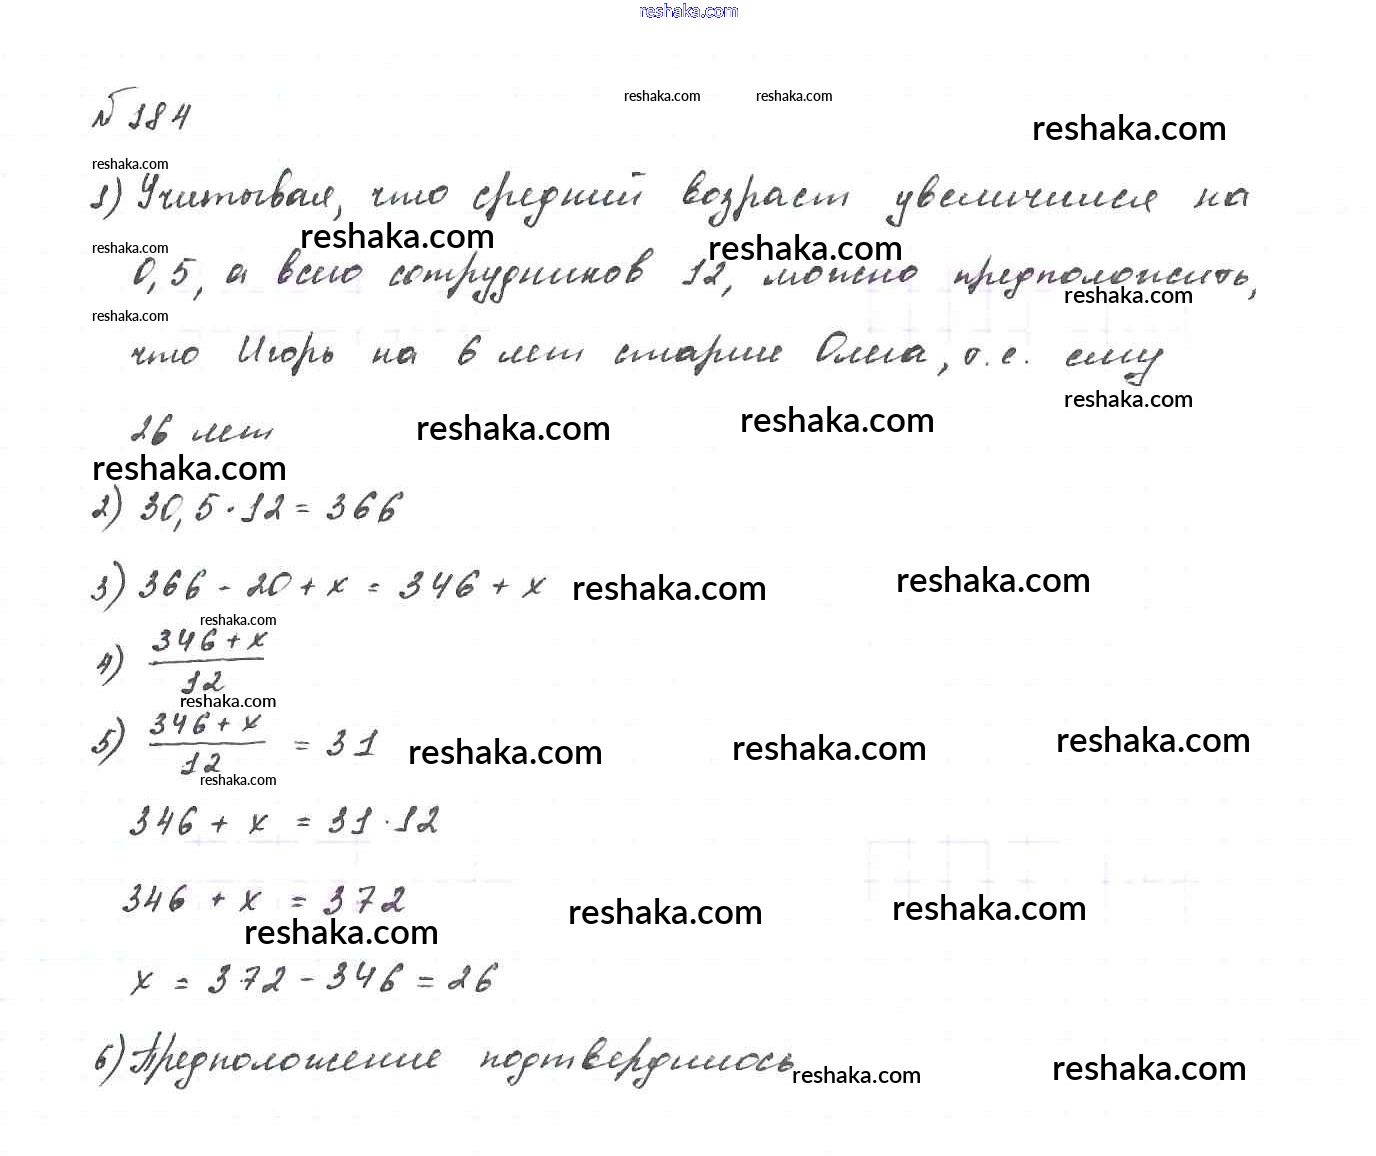 reshaka.com
№ 184
reshaka.com reshaka.com
reshaka.com
reshaka.com
1) Учитывая, что средний возраст увеличился на
reshaka.com reshaka.com
reshaka.com
0,5, а всего сотрудников 12, можно предположить,
reshaka.com
reshaka.com
что Игорь на 6 лет старше Олега, т.е. ему
reshaka.com
26 лет
reshaka.com reshaka.com
reshaka.com
2) 30,5 · 12 = 366
3) 366 - 20 + x = 346 + x
reshaka.com reshaka.com
reshaka.com
4) 346 + x
12
reshaka.com
5) 346 + x = 31
12
reshaka.com reshaka.com reshaka.com
reshaka.com
346 + x = 31 · 12
346 + x = 372
reshaka.com reshaka.com reshaka.com
x = 372 - 346 = 26
6) Предположение подтвердилось
reshaka.com reshaka.com